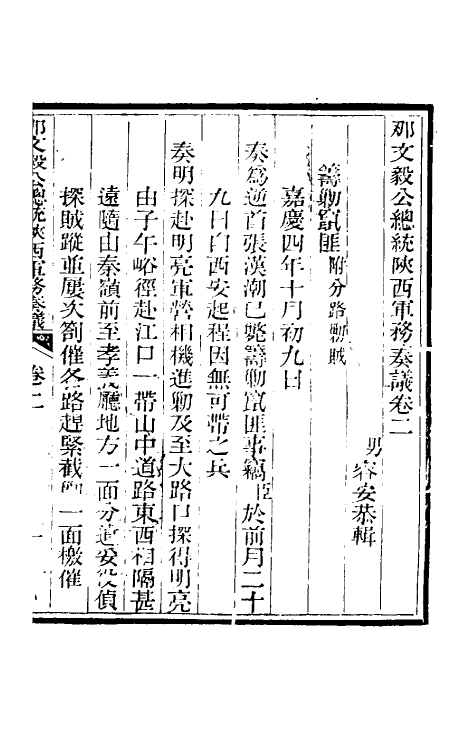 那文毅公總統陝西軍務奏議卷二
男容安恭輯
籌勦竄匪附分路勦賊
嘉慶四年十月初九日
奏爲逆首張漢潮已斃籌勦竄匪事竊臣於前月二十
九日自西安起程因無可帶之兵
奏明探赴明亮軍營相機進勦及至大路口探得明亮
由子午峪徑赴江口一帶山中道路東西相隔甚
遠隨由秦嶺前至孝義廳地方一面分遣妥役偵
探賊蹤並屢次劄催各路趕緊截 一面檄催
那文毅公總統陝西軍務奏議 卷二 一